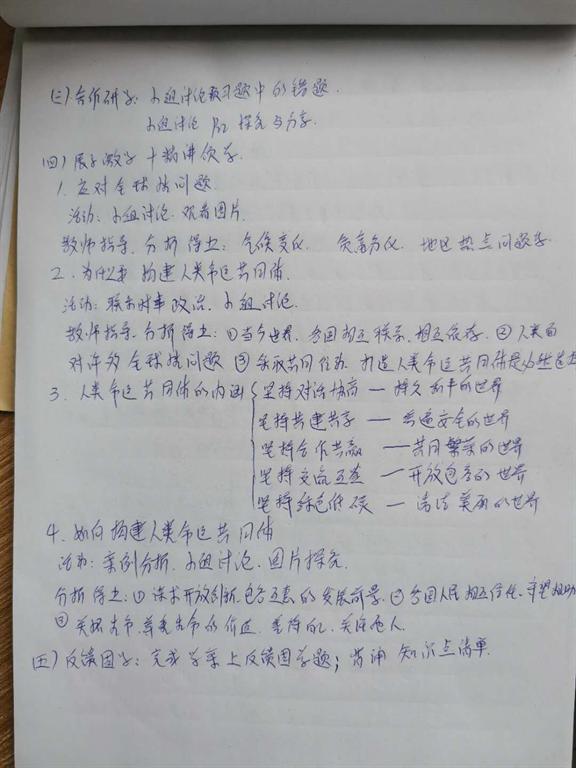 (三)合作研学:小组讨论预习题中的错题.
小组讨论 探究与分享.
(四)展示激学 十精讲领学.
1. 应对全球性问题
活动:小组讨论.观看图片.
教师指导.分析得出:气候变化. 贫富分化. 地区热点问题等
2. 为什么要构建人类命运共同体.
活动:联系时事政治.小组讨论.
教师指导.分析得出:①当今世界.各国相互联系.相互依存.②人类面
对许多全球性问题 ③采取共同行动.打造人类命运共同体是必然选择
3. 人类命运共同体的内涵 坚持对话协商—持久和平的世界
坚持共建共享—普遍安全的世界
坚持合作共赢—共同繁荣的世界
坚持交流互鉴—开放包容的世界
坚持绿色低碳—清洁美丽的世界
4. 如何构建人类命运共同体
活动:案例分析.小组讨论.图片探究.
分析得出:①谋求开放创新.包容互惠的发展前景.②各国人民相互信任.守望相助
③关怀生命.尊重生命的价值.善待自己.关注他人.
(五)反馈固学:完成学案上反馈固学题;背诵 知识点清单.